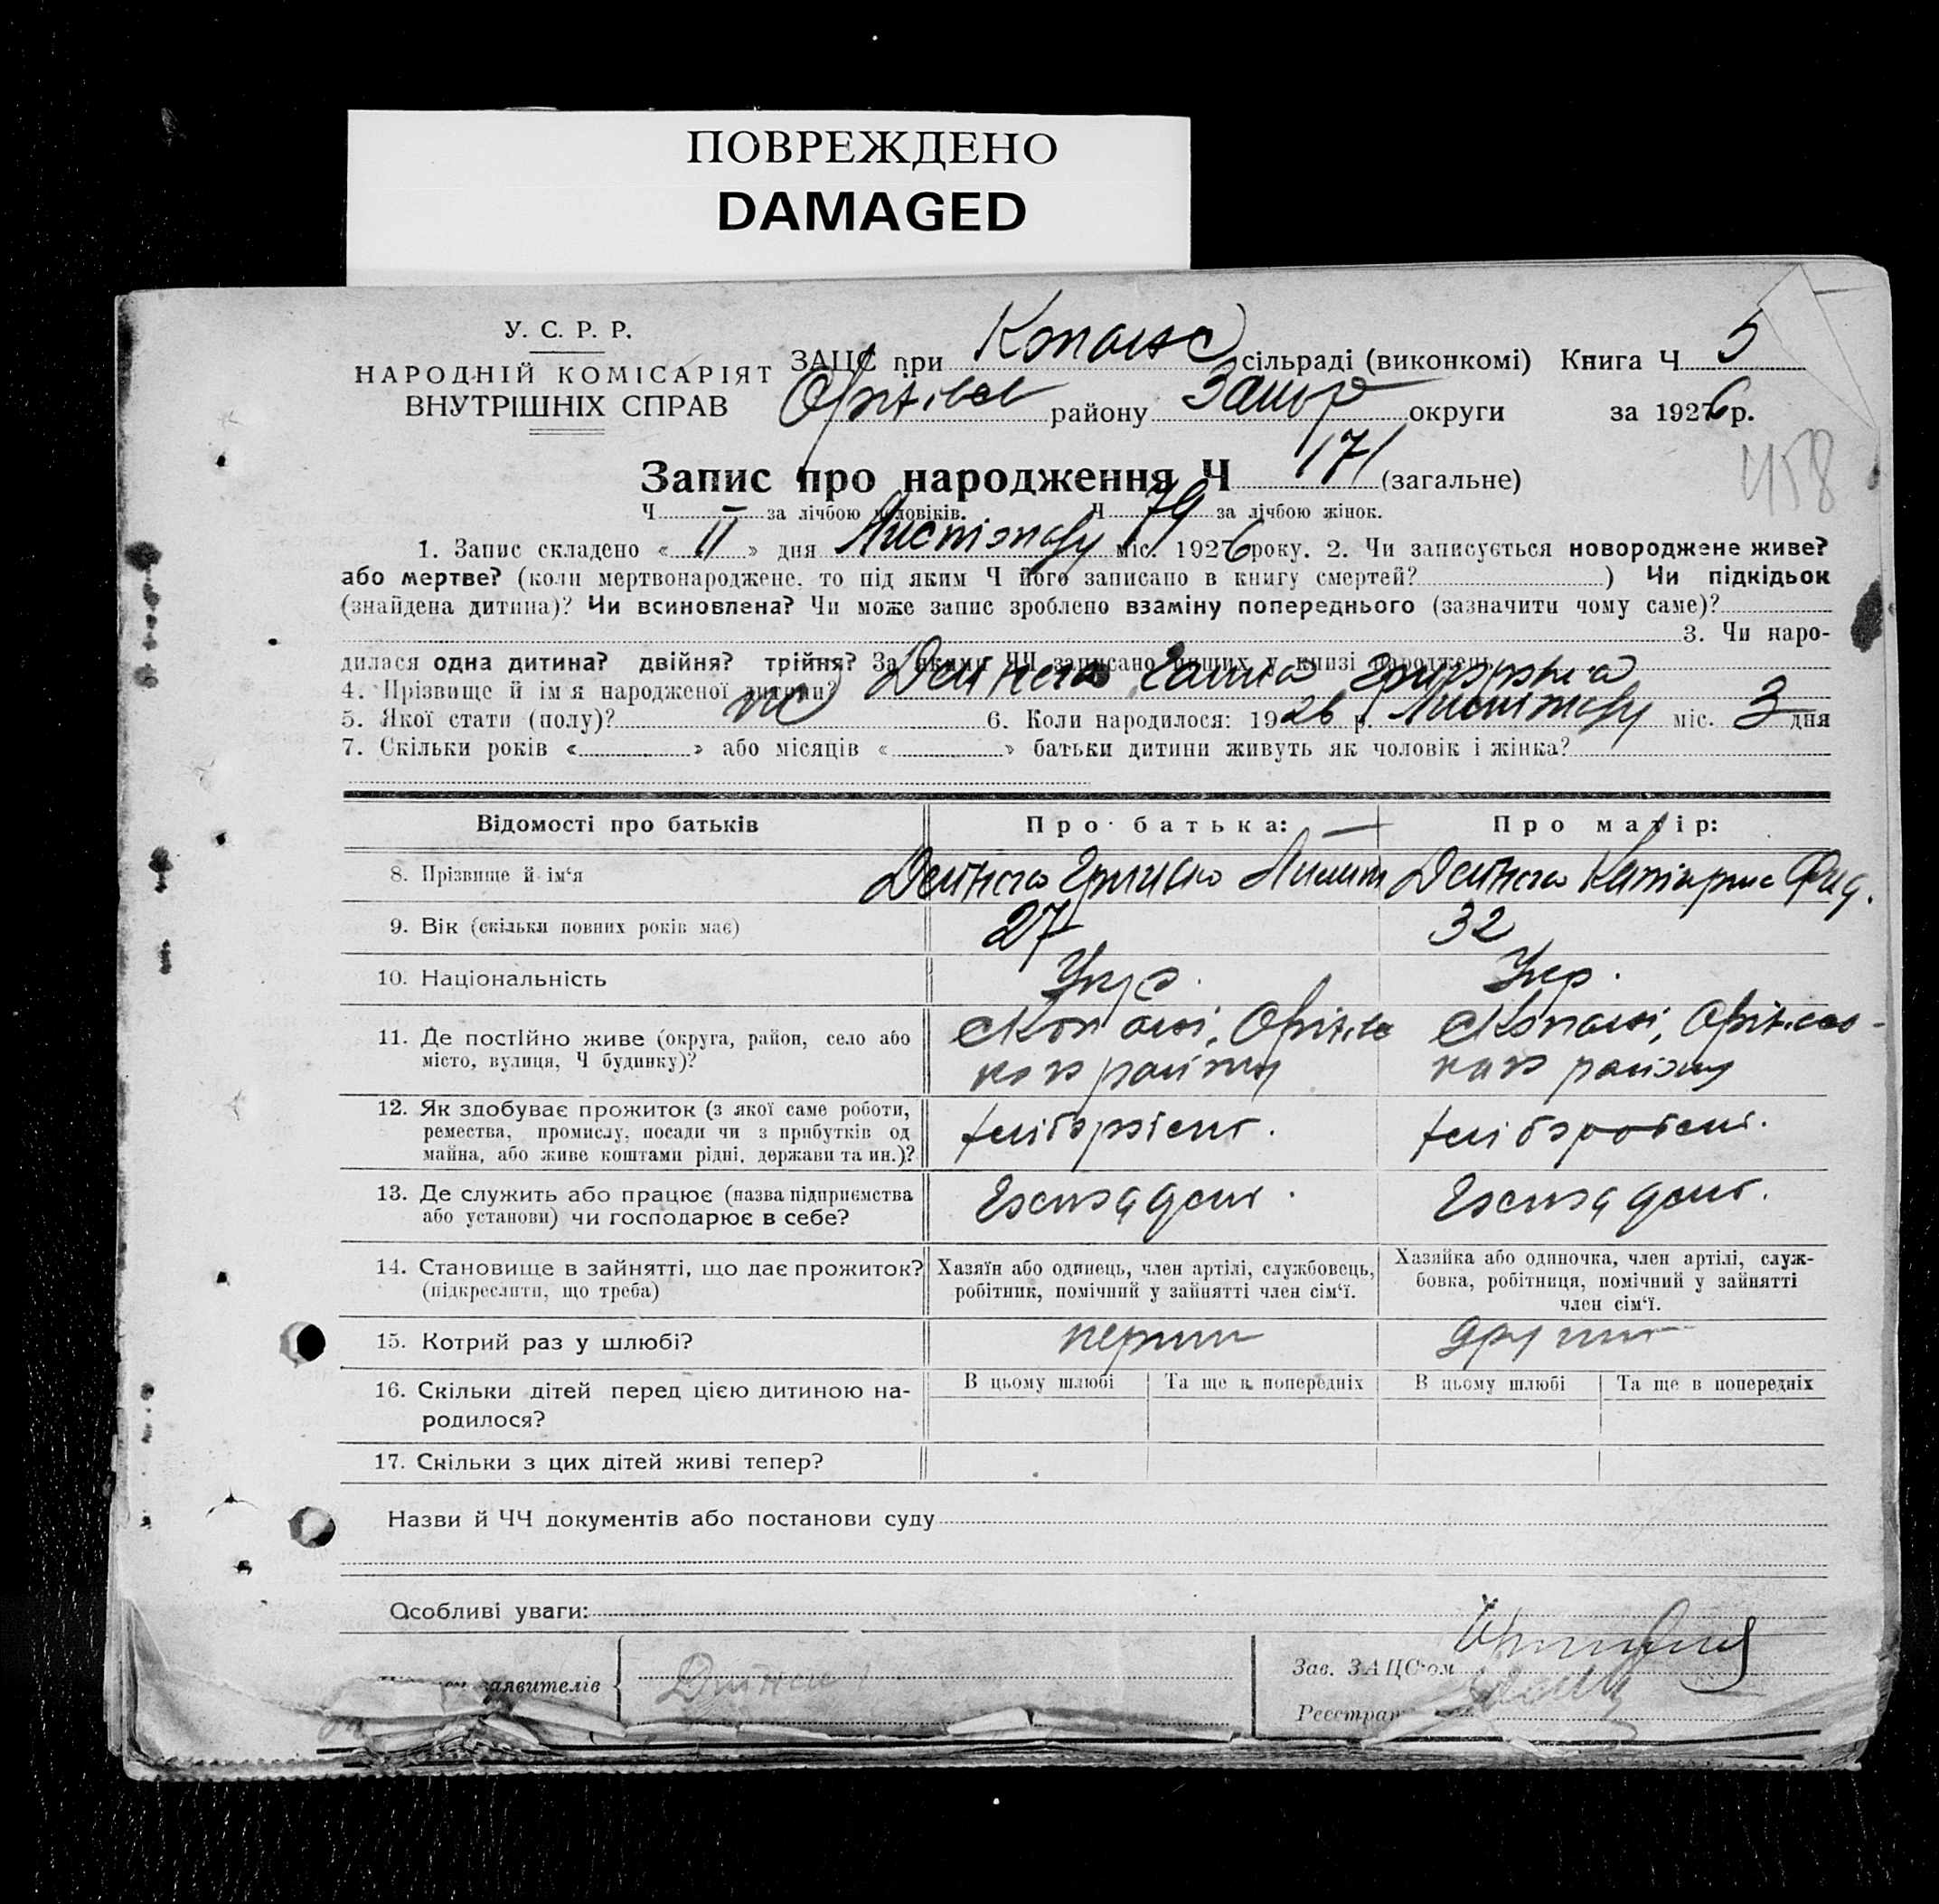 ПОВРЕЖДЕНО
DAMAGED
У. С. Р. Р.
НАРОДНІЙ КОМІСАРІЯТ
ВНУТРІШНІХ СПРАВ
ЗАЦС при Копанс сільраді (виконкомі) Книга Ч 5
Оріхівсь району Запор округи за 1926 р.
458
Запис про народження Ч 171 (загальне)
Ч за лічбою чоловіків. Ч 79 за лічбою жінок.
1. Запис складено « 11 » дня Листопаду міс. 1926 року. 2. Чи записується новороджене живе?
або мертве? (коли мертвонароджене, то під яким Ч його записано в книгу смертей? ) Чи підкідьок
(знайдена дитина)? Чи всиновлена? Чи може запис зроблено взаміну попереднього (зазначити чому саме)?
3. Чи наро-
дилася одна дитина? двійня? трійня? За якими ЧЧ записано инших у книзі народжень
4. Прізвище й ім'я народженої дитини? Дейнега
5. Якої стати (полу)? 6. Коли народилося: 1926 р. Листопаду міс. 3 дня
7. Скільки років « » або місяців « » батьки дитини живуть як чоловік і жінка?
Відомості про батьків Про батька: Про матір:
8. Прізвище й ім'я Дейнега Дейнега
9. Вік (скільки повних років має) 27 32
10. Національність Укр. Укр.
11. Де постійно живе (округа, район, село або Копані, Оріхівс Копані, Оріхівсь-
місто, вулиця, Ч будинку)? кого району кого району
12. Як здобуває прожиток (з якої саме роботи, хліборобст. хліборобст.
ремества, промислу, посади чи з прибутків од
майна, або живе коштами рідні, держави та ин.)?
13. Де служить або працює (назва підприємства
або установи) чи господарює в себе?
14. Становище в зайнятті, що дає прожиток? Хазяїн або одинець, член артілі, службовець, Хазяйка або одиночка, член артілі, служ-
(підкреслити, що треба) робітник, помічний у зайнятті член сім'ї. бовка, робітниця, помічний у зайнятті
член сім'ї.
15. Котрий раз у шлюбі? перший другий
16. Скільки дітей перед цією дитиною на- В цьому шлюбі Та ще в попередніх В цьому шлюбі Та ще в попередніх
родилося?
17. Скільки з цих дітей живі тепер?
Назви й ЧЧ документів або постанови суду
Особливі уваги:
заявителів Дейнега Зав. ЗАЦС'ом
Реєстрат